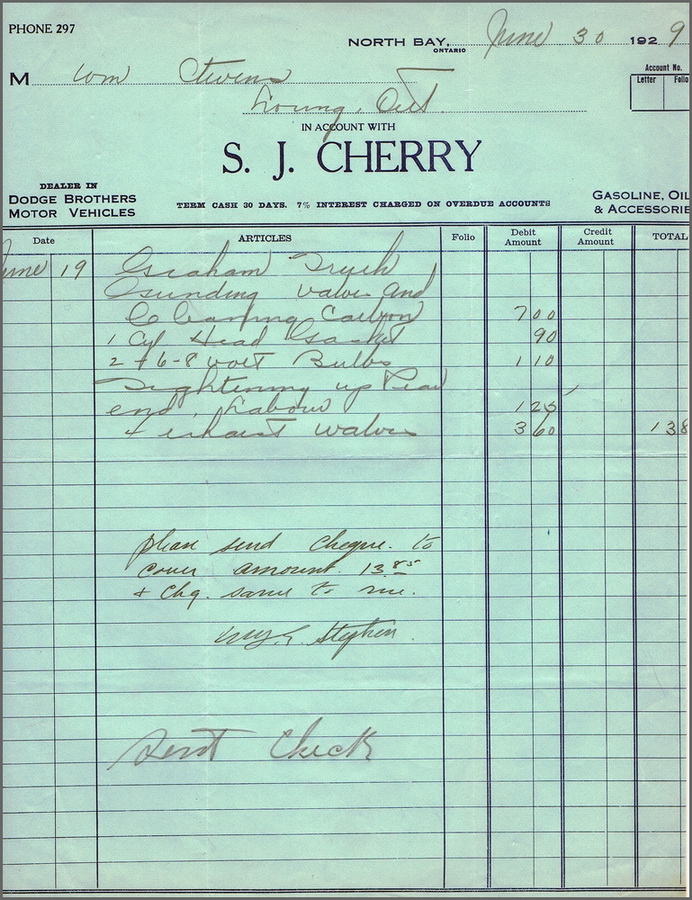 PHONE 297
NORTH BAY, ONTARIO June 30 1929
Account No.
Letter Folio
M Wm Stevens
Loring, Ont.
IN ACCOUNT WITH
S. J. CHERRY
DEALER IN
DODGE BROTHERS
MOTOR VEHICLES
TERM CASH 30 DAYS. 7% INTEREST CHARGED ON OVERDUE ACCOUNTS
GASOLINE, OIL
& ACCESSORIE
Date ARTICLES Folio Debit Amount Credit Amount TOTAL
June 19 Graham Truck
Grinding valve and
Cleaning Carbon 7 00
1 Cyl Head Gasket 90
2 6-8 volt Bulbs 1 10
Tightening up Rear
end, Labour 1 25
exhaust valves 3 60 138
please send cheque. to
cover amount. 13.85
+ chg. same to me.
Stephen.
Sent Check